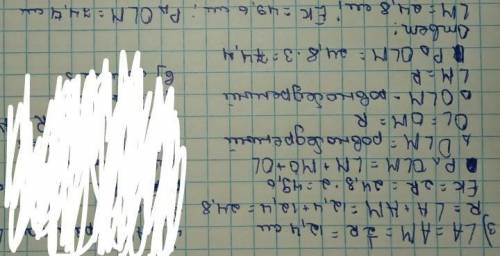 3) LA = AM = ½R = 12,4 см
R = LA + AM = 12,4 + 12,4 = 24,8
EK = 2R = 24,8·2 = 49,6
P△OLM = LM + MO + OL
△ OLM = равнобедренный
OL = OM = R
△ OLM - равнобедренный
LM = R
P△OLM = 24,8·3 = 74,4
Ответ:
LM = 24,8 см; EK = 49,6 см; P△OLM = 74,4 см
б)